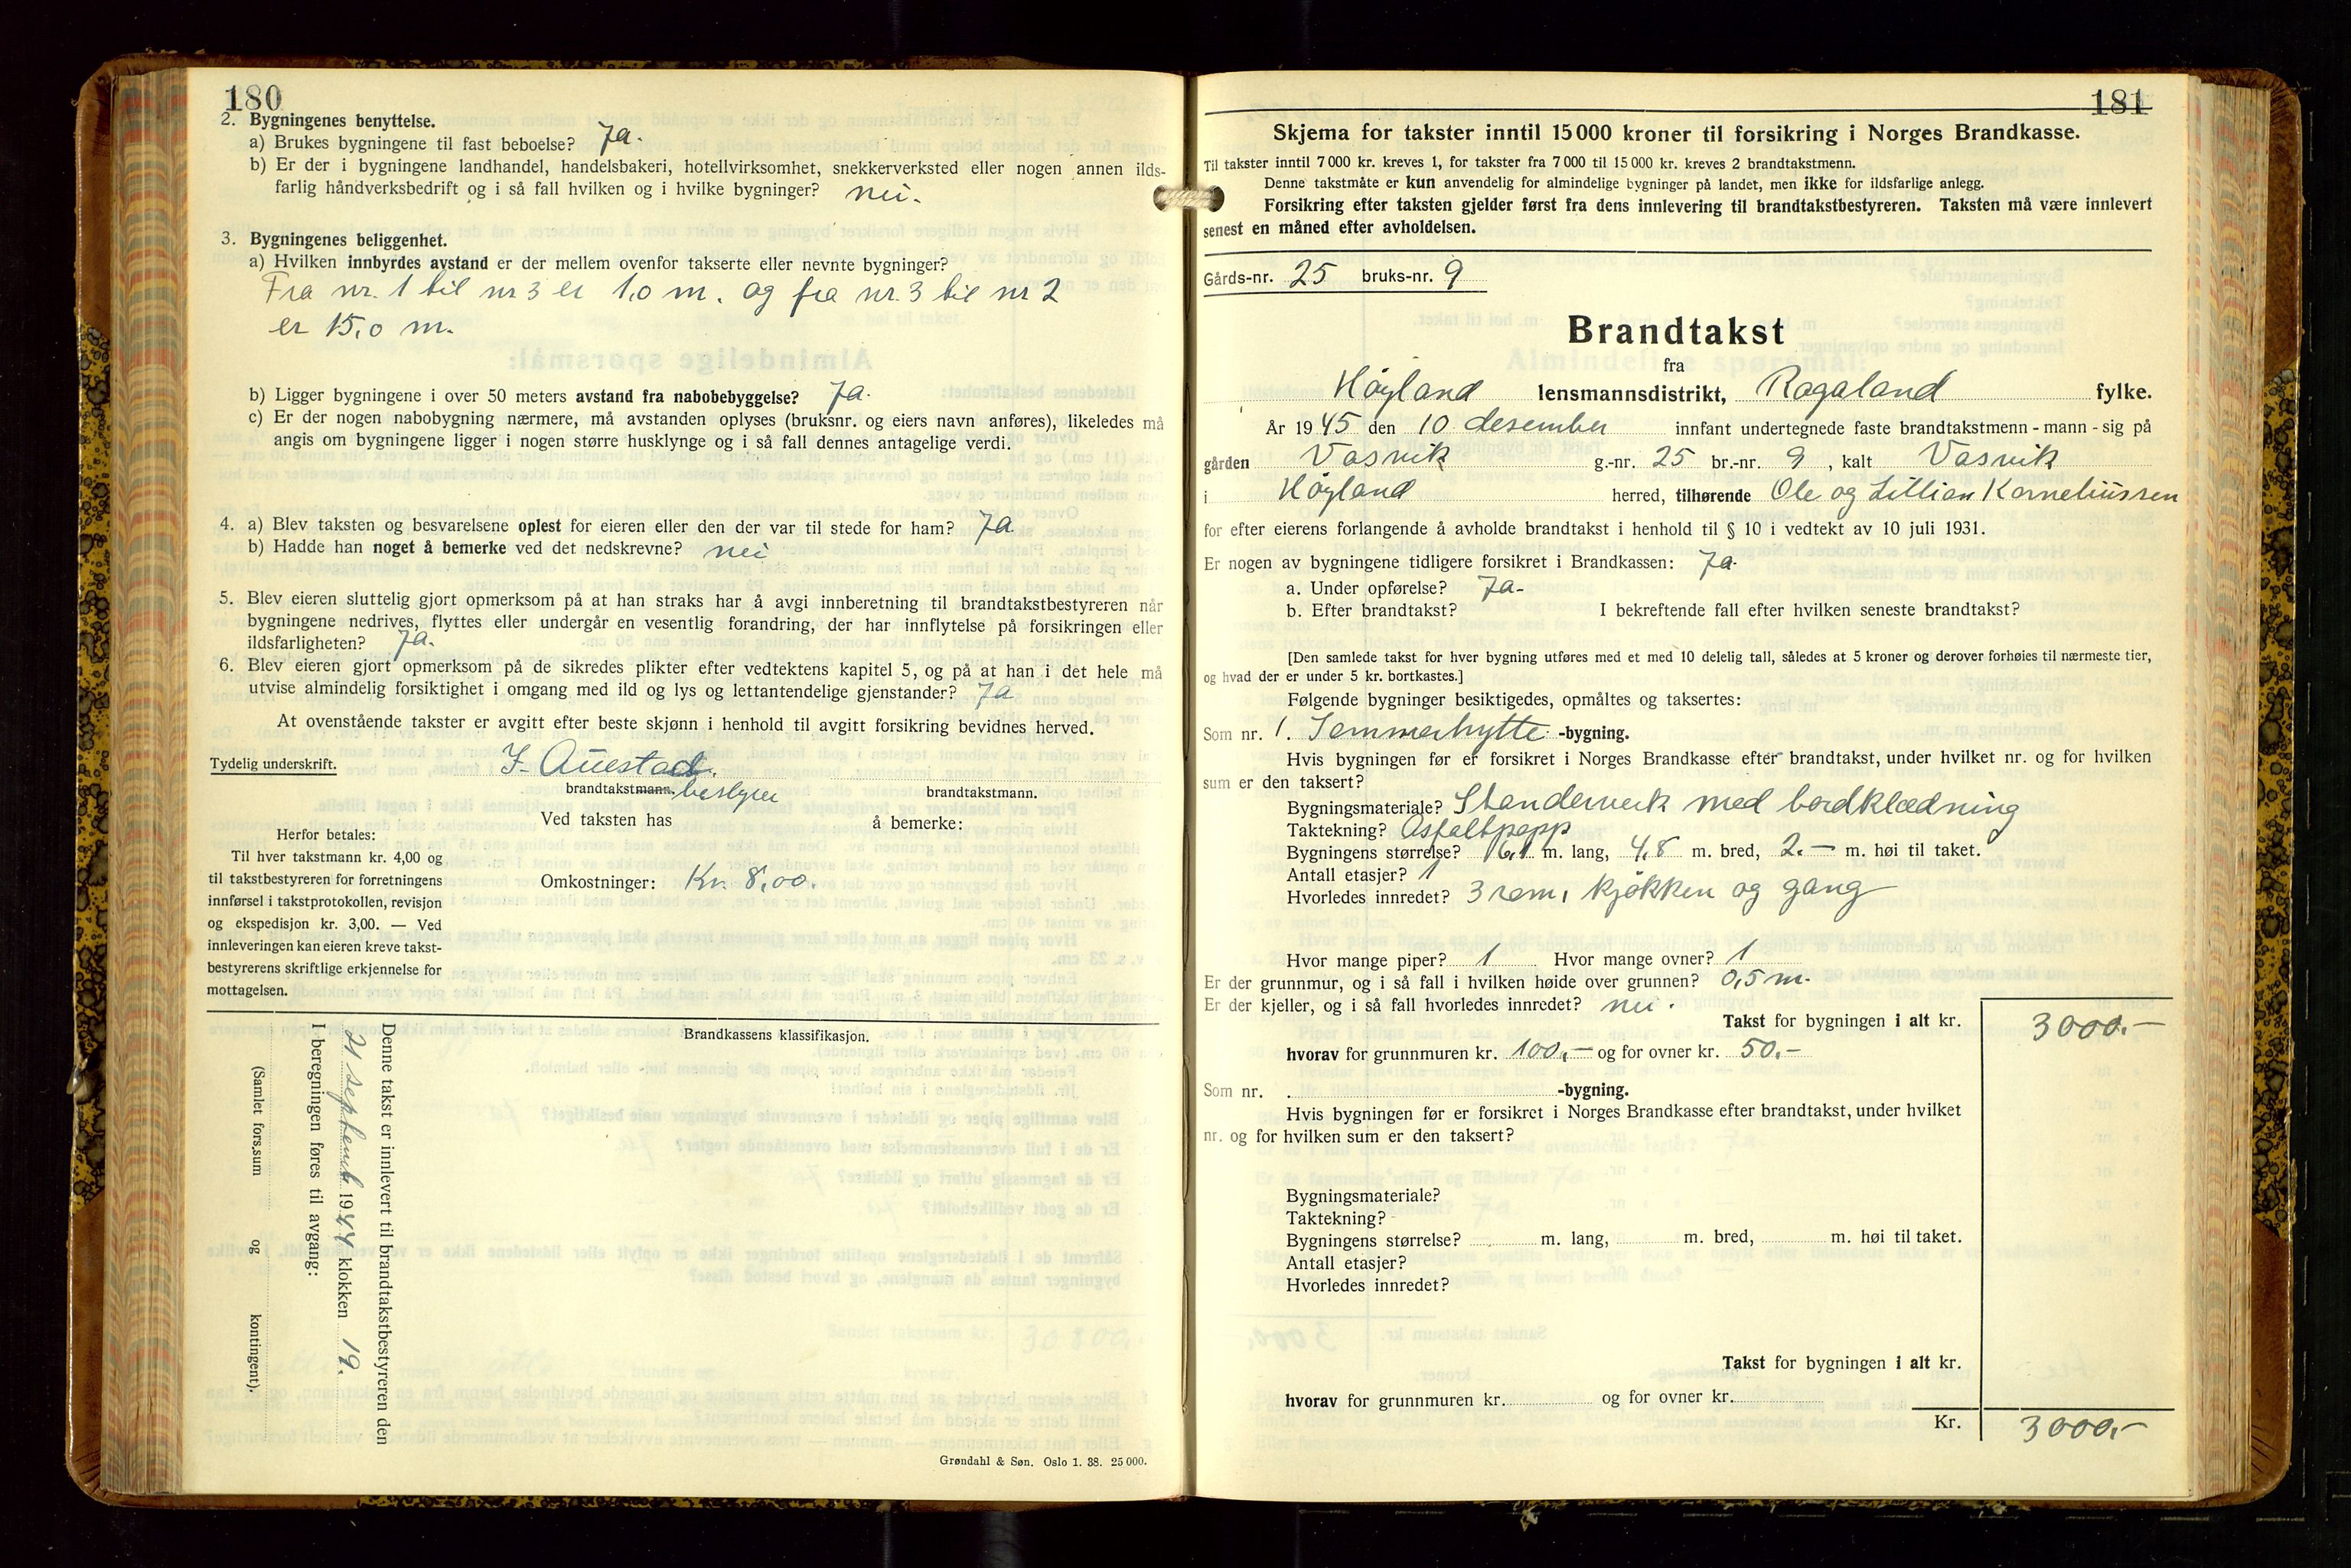 180
2. Bygningenes benyttelse.
a) Brukes bygningene til fast beboelse? Ja.
b) Er der i bygningene landhandel, handelsbakeri, hotellvirksomhet, snekkerverksted eller nogen annen ilds-
farlig håndverksbedrift og i så fall hvilken og i hvilke bygninger? nei.
3. Bygningenes beliggenhet.
a) Hvilken innbyrdes avstand er der mellem ovenfor takserte eller nevnte bygninger?
Fra nr. 1 til nr 3 er 1,0 m. og fra nr. 3 til nr 2
er 15,0 m.
b) Ligger bygningene i over 50 meters avstand fra nabobebyggelse? Ja.
c) Er der nogen nabobygning nærmere, må avstanden oplyses (bruksnr. og eiers navn anføres), likeledes må
angis om bygningene ligger i nogen større husklynge og i så fall dennes antagelige verdi.
4. a) Blev taksten og besvarelsene oplest for eieren eller den der var til stede for ham? Ja
b) Hadde han noget å bemerke ved det nedskrevne? nei
5. Blev eieren sluttelig gjort opmerksom på at han straks har å avgi innberetning til brandtakstbestyreren når
bygningene nedrives, flyttes eller undergår en vesentlig forandring, der har innflytelse på forsikringen eller
ildsfarligheten? Ja.
6. Blev eieren gjort opmerksom på de sikredes plikter efter vedtektens kapitel 5, og på at han i det hele må
utvise almindelig forsiktighet i omgang med ild og lys og lettantendelige gjenstander? Ja
At ovenstående takster er avgitt efter beste skjønn i henhold til avgitt forsikring bevidnes herved.
Tydelig underskrift. J. Auestad.
brandtakstmann. bestyrer brandtakstmann.
Ved taksten has å bemerke:
Herfor betales:
Til hver takstmann kr. 4,00 og
til takstbestyreren for forretningens
innførsel i takstprotokollen, revisjon
og ekspedisjon kr. 3,00. — Ved
innleveringen kan eieren kreve takst-
bestyrerens skriftlige erkjennelse for
mottagelsen.
Omkostninger: Kr. 8,00.
Brandkassens klassifikasjon.
Denne takst er innlevert til brandtakstbestyreren den
21 september 1944 klokken 19.
I beregningen føres til avgang:
(Samlet fors.sum og kontingent).
Grøndahl & Søn. Oslo 1. 38. 25 000.
181
Skjema for takster inntil 15 000 kroner til forsikring i Norges Brandkasse.
Til takster inntil 7 000 kr. kreves 1, for takster fra 7 000 til 15 000 kr. kreves 2 brandtakstmenn.
Denne takstmåte er kun anvendelig for almindelige bygninger på landet, men ikke for ildsfarlige anlegg.
Forsikring efter taksten gjelder først fra dens innlevering til brandtakstbestyreren. Taksten må være innlevert
senest en måned efter avholdelsen.
Gårds-nr. 25 bruks-nr. 9
Brandtakst
fra
Høyland lensmannsdistrikt, Rogaland fylke.
År 1945 den 10 desember innfant undertegnede faste brandtakstmenn - mann - sig på
gården Vasvik g.-nr. 25 br.-nr. 9, kalt Vasvik
i Høyland herred, tilhørende Ole og Lillian Korneliussen
for efter eierens forlangende å avholde brandtakst i henhold til § 10 i vedtekt av 10 juli 1931.
Er nogen av bygningene tidligere forsikret i Brandkassen: Ja.
a. Under opførelse? Ja.
b. Efter brandtakst? I bekreftende fall efter hvilken seneste brandtakst?
[Den samlede takst for hver bygning utføres med et med 10 delelig tall, således at 5 kroner og derover forhøies til nærmeste tier,
og hvad der er under 5 kr. bortkastes.]
Følgende bygninger besiktigedes, opmåltes og taksertes:
Som nr. 1. Sommerhytte -bygning.
Hvis bygningen før er forsikret i Norges Brandkasse efter brandtakst, under hvilket nr. og for hvilken
sum er den taksert?
Bygningsmateriale? Standerverk med bordklædning
Taktekning? Asfaltpapp
Bygningens størrelse? 6,1 m. lang, 4,8 m. bred, 2.— m. høi til taket.
Antall etasjer? 1
Hvorledes innredet? 3 rom, kjøkken og gang
Hvor mange piper? 1 Hvor mange ovner? 1
Er der grunnmur, og i så fall i hvilken høide over grunnen? 0,5 m.
Er der kjeller, og i så fall hvorledes innredet? nei.
Takst for bygningen i alt kr. 3000.—
hvorav for grunnmuren kr. 100,— og for ovner kr. 50,—
Som nr. . -bygning.
Hvis bygningen før er forsikret i Norges Brandkasse efter brandtakst, under hvilket
nr. og for hvilken sum er den taksert?
Bygningsmateriale?
Taktekning?
Bygningens størrelse? m. lang, m. bred, m. høi til taket.
Antall etasjer?
Hvorledes innredet?
Takst for bygningen i alt kr.
hvorav for grunnmuren kr. og for ovner kr.
Kr. 3000,—